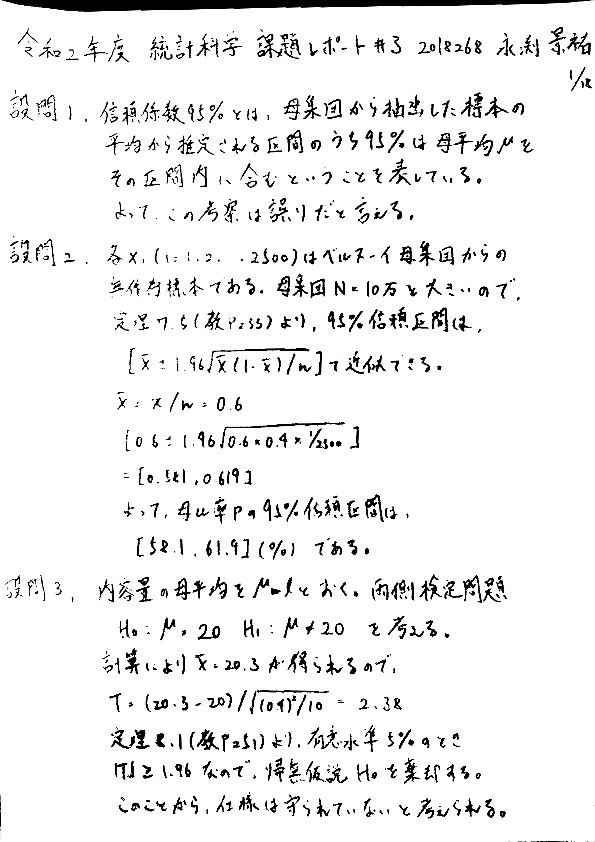 令和2年度 統計科学 課題レポート#3 2018268 永渕 景祐
1/18
設問1. 信頼係数95%とは、母集団から抽出した標本の
平均から推定される区間のうち95%は母平均μを
その区間内に含むということを表している。
よって、この考察は誤りだと言える。
設問2. 各xi (i=1.2. .2500)はベルヌーイ母集団からの
無作為標本である。母集団N=10万と大きいので、
定理7.5(教P233)より、95%信頼区間は、
[x̄±1.96√x̄(1-x̄)/n]で近似できる。
x̄=x/n=0.6
[0.6±1.96√0.6×0.4×1/2500]
=[0.581,0.619]
よって、母比率Pの95%信頼区間は、
[58.1,61.9](%) である。
設問3. 内容量の母平均をμmlとおく。両側検定問題
H0:μ=20 H1:μ≠20 を考える。
計算によりx̄=20.3が得られるので、
T=(20.3-20)/√(0.4)²/10 = 2.38
定理8.1(教P251)より、有意水準5%のとき
|T|≥1.96なので、帰無仮説H0を棄却する。
このことから、仕様は守られていないと考えられる。